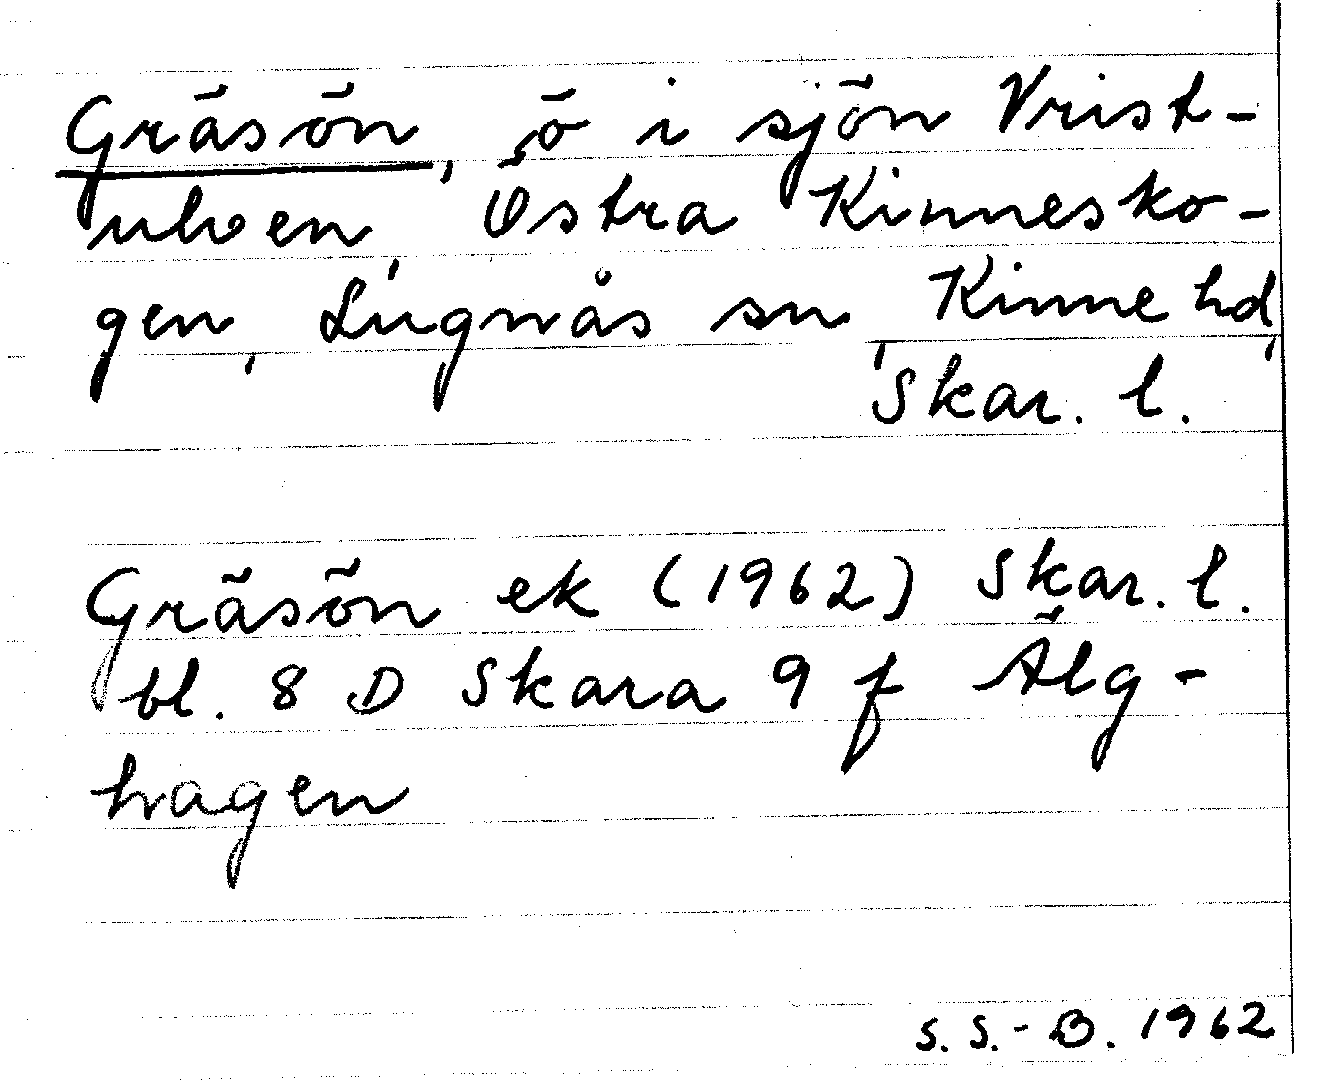 Gräsön, ö i sjön Vrist-
ulven, Östra Kinnesko-
gen, Lugnås sn, Kinne hd,
Skar. l.
Gräsön ek (1962) Skar. l.
bl. 8 D Skara 9 f Älg-
hagen
S. S.-B. 1962